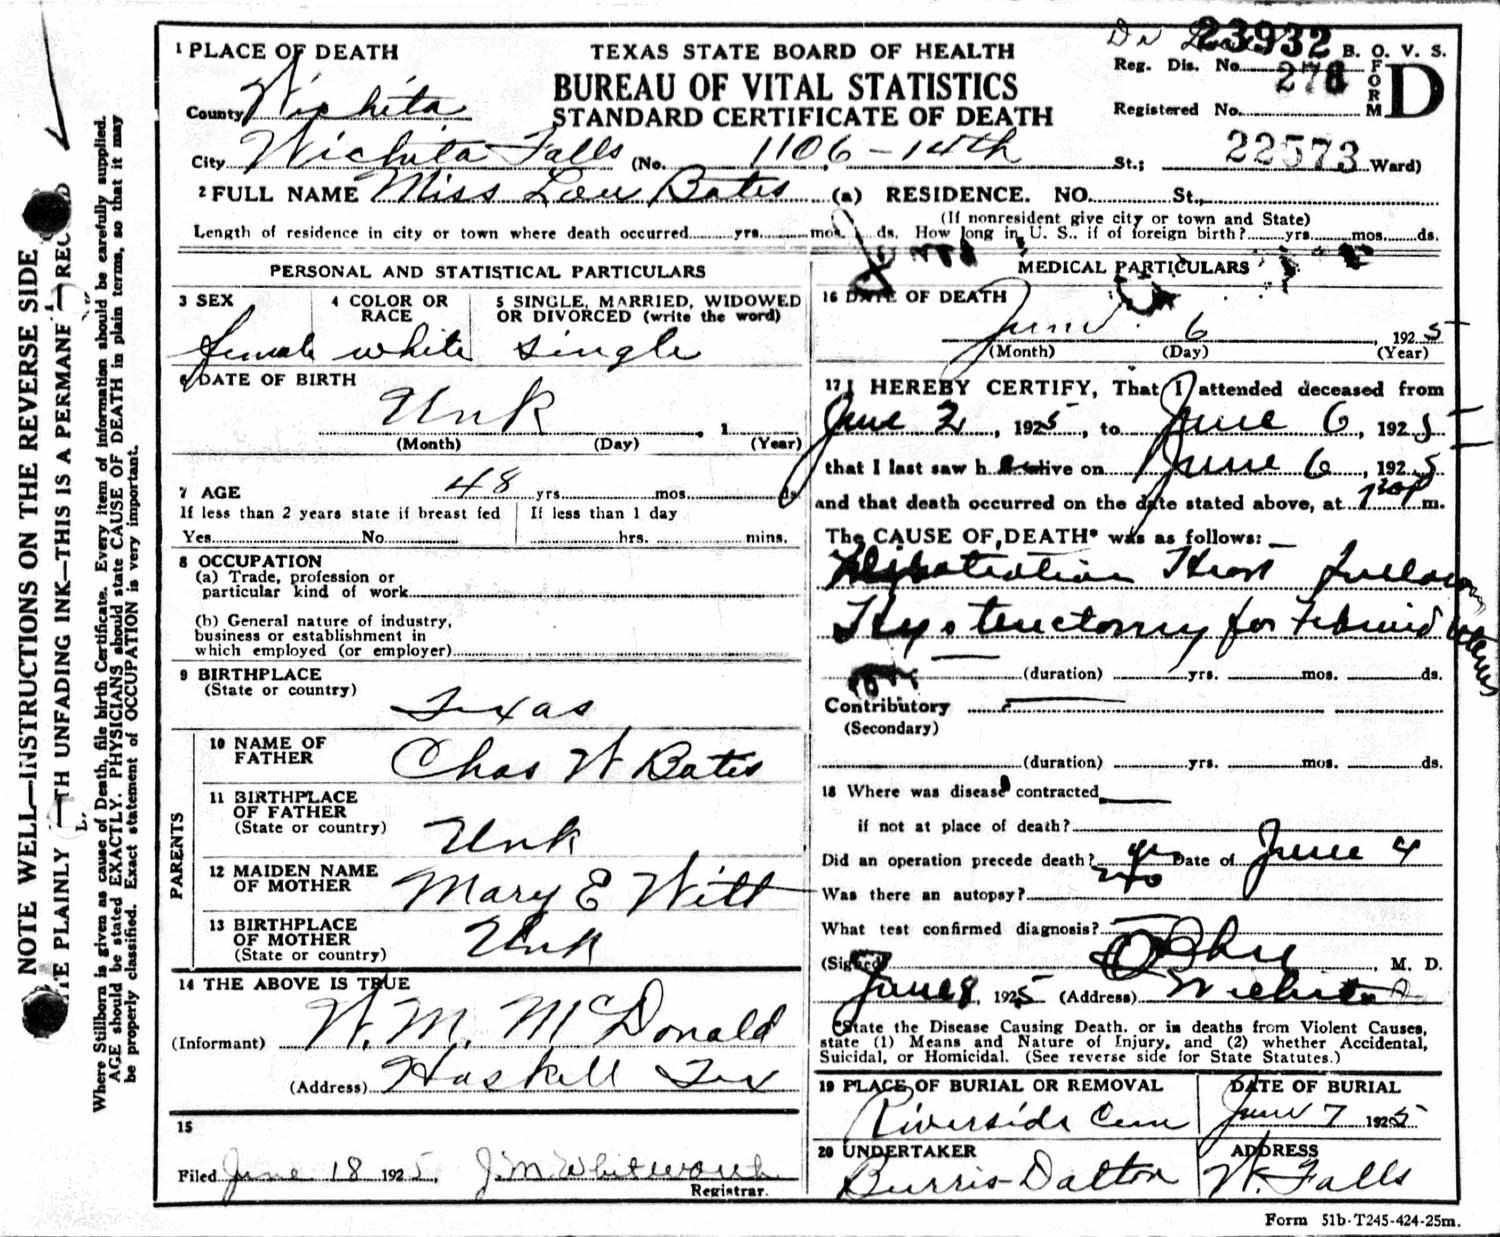 23932
1 PLACE OF DEATH
TEXAS STATE BOARD OF HEALTH
B. O. V. S.
Reg. Dis. No.
BUREAU OF VITAL STATISTICS
FORM D
County Wichita
STANDARD CERTIFICATE OF DEATH
Registered No.
City Wichita Falls (No. 1106-14th St.; 22573 Ward)
2 FULL NAME Miss Lou Bates (a) RESIDENCE. NO. St.,
(If nonresident give city or town and State)
Length of residence in city or town where death occurred yrs. mos. ds. How long in U. S., if of foreign birth? yrs. mos. ds.
PERSONAL AND STATISTICAL PARTICULARS
3 SEX
4 COLOR OR RACE
5 SINGLE, MARRIED, WIDOWED
OR DIVORCED (write the word)
female white single
6 DATE OF BIRTH
Unk
(Month) (Day) , 1 (Year)
7 AGE 48 yrs. mos. ds.
If less than 2 years state if breast fed
If less than 1 day
Yes No
hrs. mins.
8 OCCUPATION
(a) Trade, profession or
particular kind of work
(b) General nature of industry,
business or establishment in
which employed (or employer)
9 BIRTHPLACE
(State or country)
Texas
PARENTS
10 NAME OF
FATHER
Chas W Bates
11 BIRTHPLACE
OF FATHER
(State or country)
Unk
12 MAIDEN NAME
OF MOTHER
Mary E Witt
13 BIRTHPLACE
OF MOTHER
(State or country)
Unk
14 THE ABOVE IS TRUE
(Informant) W. M. McDonald
(Address) Haskell Tex
15
Filed June 18 1925, J. M. Whitworth
Registrar.
MEDICAL PARTICULARS
16 DATE OF DEATH
June 6, 1925
(Month) (Day) (Year)
17 I HEREBY CERTIFY, That I attended deceased from
June 2, 1925, to June 6, 1925
that I last saw h alive on June 6, 1925
and that death occurred on the date stated above, at m.
The CAUSE OF DEATH* was as follows:
Heart
Hysterectomy for
(duration) yrs. mos. ds.
Contributory
(Secondary)
(duration) yrs. mos. ds.
18 Where was disease contracted
if not at place of death?
Did an operation precede death? yes Date of June 4
Was there an autopsy? no
What test confirmed diagnosis?
(Signed) , M. D.
June 8, 1925 (Address) Wichita
*State the Disease Causing Death. or in deaths from Violent Causes,
state (1) Means and Nature of Injury, and (2) whether Accidental,
Suicidal, or Homicidal. (See reverse side for State Statutes.)
19 PLACE OF BURIAL OR REMOVAL
DATE OF BURIAL
Riverside Cem
June 7 1925
20 UNDERTAKER
ADDRESS
Burris-Dalton
W. Falls
Form 51b-T245-424-25m.
NOTE WELL—INSTRUCTIONS ON THE REVERSE SIDE
PLAINLY TH UNFADING INK—THIS IS A PERMANE REC
Where Stillborn is given as cause of Death, file birth Certificate. Every item of information should be carefully supplied.
AGE should be stated EXACTLY. PHYSICIANS should state CAUSE OF DEATH in plain terms, so that it may
be properly classified. Exact statement of OCCUPATION is very important.